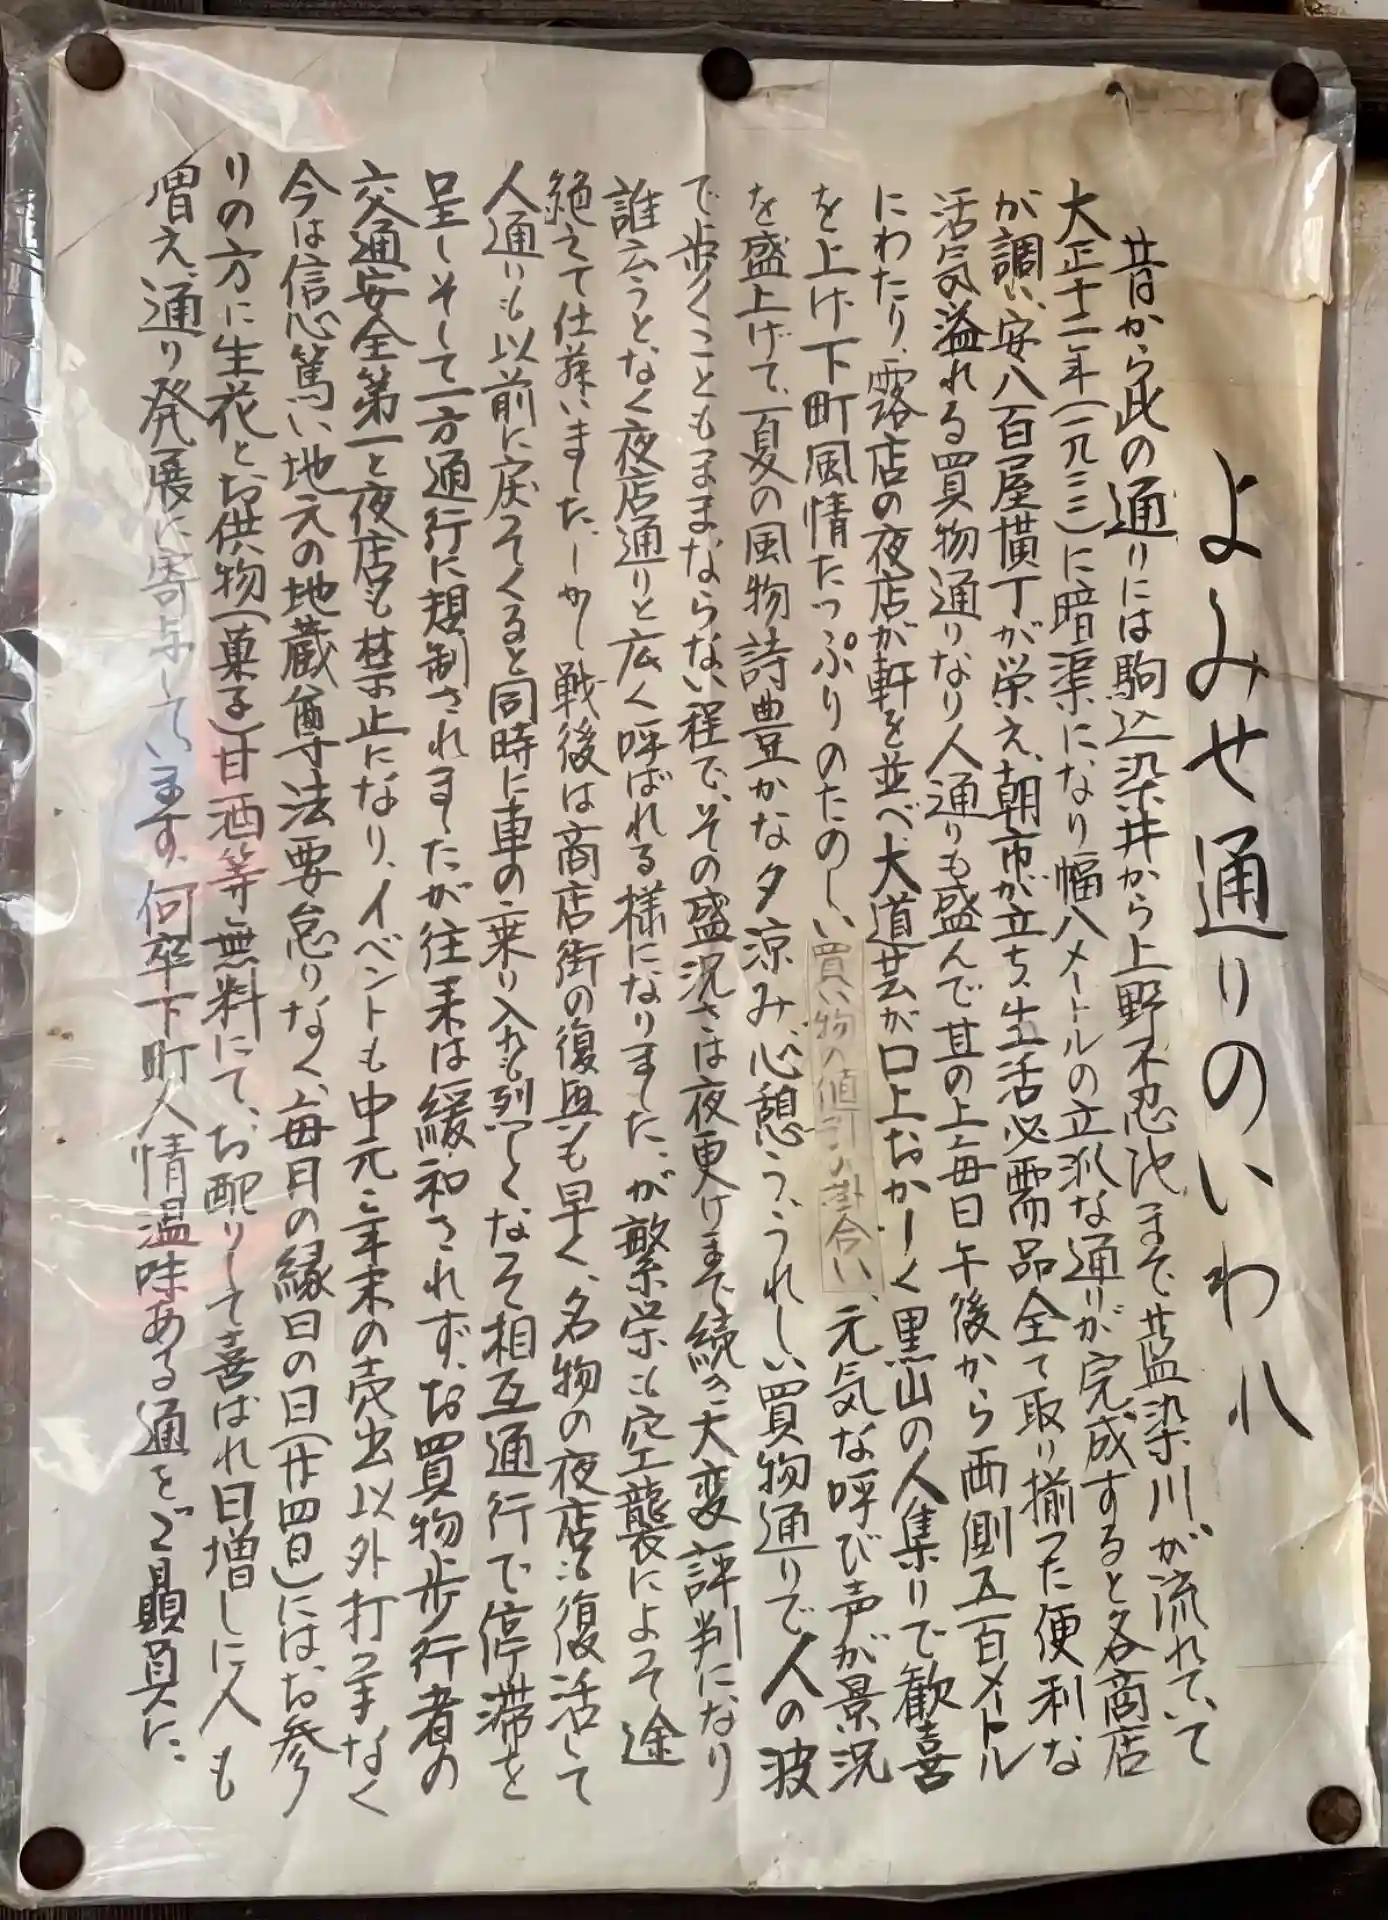 よみせ通りのいわれ
昔から此の通りには駒込染井から上野不忍池まで藍染川が流れていて
大正十二年(一九二三)に暗渠になり幅八メートルの立派な通りが完成すると各商店
が調い、安八百屋横丁が栄え、朝市が立ち、生活必需品全て取り揃った便利な
活気溢れる買物通りなり人通りも盛んで其の上毎日午後から西側五百メートル
にわたり、露店の夜店が軒を並べ大道芸が口上おかしく黒山の人集りで歓喜
を上げ下町風情たっぷりのたのしい買い物の値引の掛合い、元気な呼び声が景況
を盛上げて、夏の風物詩豊かな夕涼み心憩う、うれしい買物通りで人の波
で歩くこともままならない程で、その盛況さは夜更けまで続って大変評判になり
誰云うとなく夜店通りと広く呼ばれる様になりました、が繁栄も空襲によって途
絶えて仕舞いました、しかし戦後は商店街の復興も早く、名物の夜店も復活して
人通りも以前に戻ってくると同時に車の乗り入れも烈しくなって相互通行で停滞を
呈しそして一方通行に規制されましたが往来は緩和されず、お買物歩行者の
交通安全第一と夜店も禁止になり、イベントも中元と年末の売出以外打つ手なく
今は信心篤い地元の地蔵尊寸法要怠りなく、毎月の縁日の日(廿四日)にはお参
りの方に生花とお供物(菓子)甘酒等無料にて、お配りして喜ばれ日増しに人も
増え、通り発展に寄与しています、何卒下町人情温味ある通をご贔屓に、